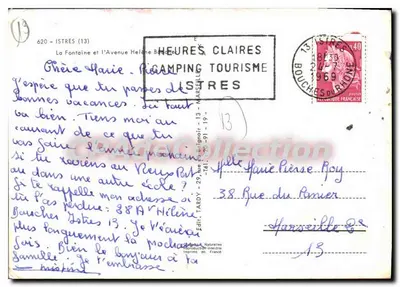 13
620 - ISTRES (13)
La Fontaine et l'Avenue Hélène
HEURES CLAIRES
CAMPING TOURISME
ISTRES
13 ISTRES
18H
24-7
1969
BOUCHES DU RHONE
0,40
Chère Marie-Pierre
J'espère que tu passes de
bonnes vacances. Ici tout
va bien. Tiens moi au
courant de ce que tu
vas faire l'année prochaine
si tu reviens au Vieux Port
ou dans une autre école?
Je te rappelle mon adresse si
tu l'as perdue: 38 Av Hélène
Boucher Istres 13. Je t'écrirai
plus longuement la prochaine
fois. Bien le bonjour à ta
famille; je t'embrasse
13
Melle Marie Pierre Roy
38, Rue du
Marseille 8e
13